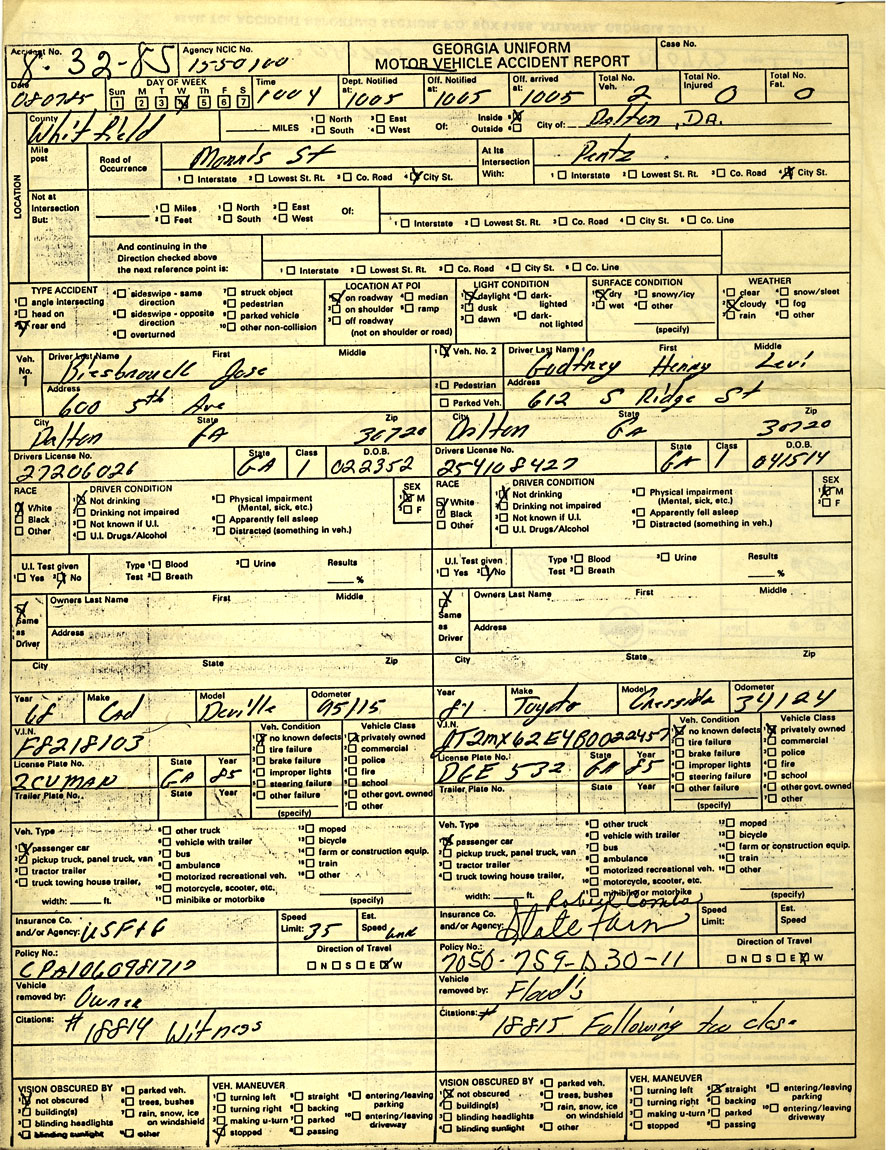 Accident No. 8-32-85 Agency NCIC No. 1550100 GEORGIA UNIFORM MOTOR VEHICLE ACCIDENT REPORT Case No.
Date 080785 DAY OF WEEK Sun M T W Th F S 1 2 3 4 5 6 7 Time 1004 Dept. Notified at: 1005 Off. Notified at: 1005 Off. arrived at: 1005 Total No. Veh. 2 Total No. Injured 0 Total No. Fat. 0
LOCATION
County Whitfield MILES 1 North 2 South 3 East 4 West Of: Inside 5 Outside 6 City of: Dalton, GA.
Mile post Road of Occurrence Morris St At Its Intersection With: Pentz
1 Interstate 2 Lowest St. Rt. 3 Co. Road 4 City St. 1 Interstate 2 Lowest St. Rt. 3 Co. Road 4 City St.
Not at Intersection But: 1 Miles 2 Feet 1 North 2 East 3 South 4 West Of:
1 Interstate 2 Lowest St. Rt. 3 Co. Road 4 City St. 5 Co. Line
And continuing in the Direction checked above the next reference point is:
1 Interstate 2 Lowest St. Rt. 3 Co. Road 4 City St. 5 Co. Line
TYPE ACCIDENT 1 angle intersecting 2 head on 3 rear end 4 sideswipe - same direction 5 sideswipe - opposite direction 6 overturned 7 struck object 8 pedestrian 9 parked vehicle 10 other non-collision
LOCATION AT POI 1 on roadway 2 on shoulder 3 off roadway 4 median 5 ramp (not on shoulder or road)
LIGHT CONDITION 1 daylight 2 dusk 3 dawn 4 dark-lighted 5 dark-not lighted
SURFACE CONDITION 1 dry 2 wet 3 snowy/icy 4 other (specify)
WEATHER 1 clear 2 cloudy 3 rain 4 snow/sleet 5 fog 6 other
Veh. No. 1 Driver Last Name First Middle
Biesbrouck Jose
Address 600 5th Ave
City State Zip
Dalton GA 30720
Drivers License No. State Class D.O.B.
27206026 GA 1 022352
RACE White Black Other
DRIVER CONDITION 1 Not drinking 2 Drinking not impaired 3 Not known if U.I. 4 U.I. Drugs/Alcohol 5 Physical impairment (Mental, sick, etc.) 6 Apparently fell asleep 7 Distracted (something in veh.)
SEX M F
U.I. Test given 1 Yes 2 No Type Test 1 Blood 2 Breath 3 Urine Results %
Same as Driver Owners Last Name First Middle
Address
City State Zip
Year 68 Make Cad Model Deville Odometer 95115
V.I.N. F8218103
License Plate No. 2CUMAN State GA Year 85
Trailer Plate No. State Year
Veh. Condition 1 no known defects 2 tire failure 3 brake failure 4 improper lights 5 steering failure 6 other failure (specify)
Vehicle Class 1 privately owned 2 commercial 3 police 4 fire 5 school 6 other govt. owned 7 other
Veh. Type 1 passenger car 2 pickup truck, panel truck, van 3 tractor trailer 4 truck towing house trailer, width: ft. 5 other truck 6 vehicle with trailer 7 bus 8 ambulance 9 motorized recreational veh. 10 motorcycle, scooter, etc. 11 minibike or motorbike 12 moped 13 bicycle 14 farm or construction equip. 15 train 16 other (specify)
Insurance Co. and/or Agency: USF+G Speed Limit: 35 Est. Speed
Policy No.: CPA1060981710 Direction of Travel N S E W
Vehicle removed by: Owner
Citations: # 18814 Witness
VISION OBSCURED BY 1 not obscured 2 building(s) 3 blinding headlights 4 blinding sunlight 5 parked veh. 6 trees, bushes 7 rain, snow, ice on windshield 8 other
VEH. MANEUVER 1 turning left 2 turning right 3 making u-turn 4 stopped 5 straight 6 backing 7 parked 8 passing 9 entering/leaving parking 10 entering/leaving driveway
1 Veh. No. 2 2 Pedestrian Parked Veh. Driver Last Name First Middle
Godfrey Henry Levi
Address 612 S Ridge St
City State Zip
Dalton GA 30720
Drivers License No. State Class D.O.B.
254108427 GA 1 041514
RACE White Black Other
DRIVER CONDITION 1 Not drinking 2 Drinking not impaired 3 Not known if U.I. 4 U.I. Drugs/Alcohol 5 Physical impairment (Mental, sick, etc.) 6 Apparently fell asleep 7 Distracted (something in veh.)
SEX M F
U.I. Test given 1 Yes 2 No Type Test 1 Blood 2 Breath 3 Urine Results %
Same as Driver Owners Last Name First Middle
Address
City State Zip
Year 81 Make Toyota Model Cressida Odometer 34124
V.I.N. JT2MX62E4B0022457
License Plate No.: DGE 532 State GA Year 85
Trailer Plate No. State Year
Veh. Condition 1 no known defects 2 tire failure 3 brake failure 4 improper lights 5 steering failure 6 other failure (specify)
Vehicle Class 1 privately owned 2 commercial 3 police 4 fire 5 school 6 other govt. owned 7 other
Veh. Type 1 passenger car 2 pickup truck, panel truck, van 3 tractor trailer 4 truck towing house trailer, width: ft. 5 other truck 6 vehicle with trailer 7 bus 8 ambulance 9 motorized recreational veh. 10 motorcycle, scooter, etc. 11 minibike or motorbike 12 moped 13 bicycle 14 farm or construction equip. 15 train 16 other (specify)
Insurance Co. and/or Agency: State Farm Speed Limit: Est. Speed
Policy No.: 7056-759-D30-11 Direction of Travel N S E W
Vehicle removed by: Floyd's
Citations: # 18815 Following too close
VISION OBSCURED BY 1 not obscured 2 building(s) 3 blinding headlights 4 blinding sunlight 5 parked veh. 6 trees, bushes 7 rain, snow, ice on windshield 8 other
VEH. MANEUVER 1 turning left 2 turning right 3 making u-turn 4 stopped 5 straight 6 backing 7 parked 8 passing 9 entering/leaving parking 10 entering/leaving driveway